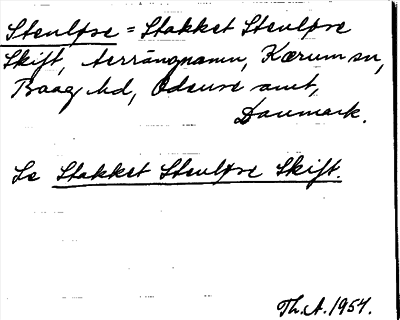 Stenløse = Stakket Stenløse
Skift, terrängnamn, Kærum sn,
Baag hd, Odense amt,
Danmark.
Se Stakket Stenløse Skift.
Th. A. 1954.